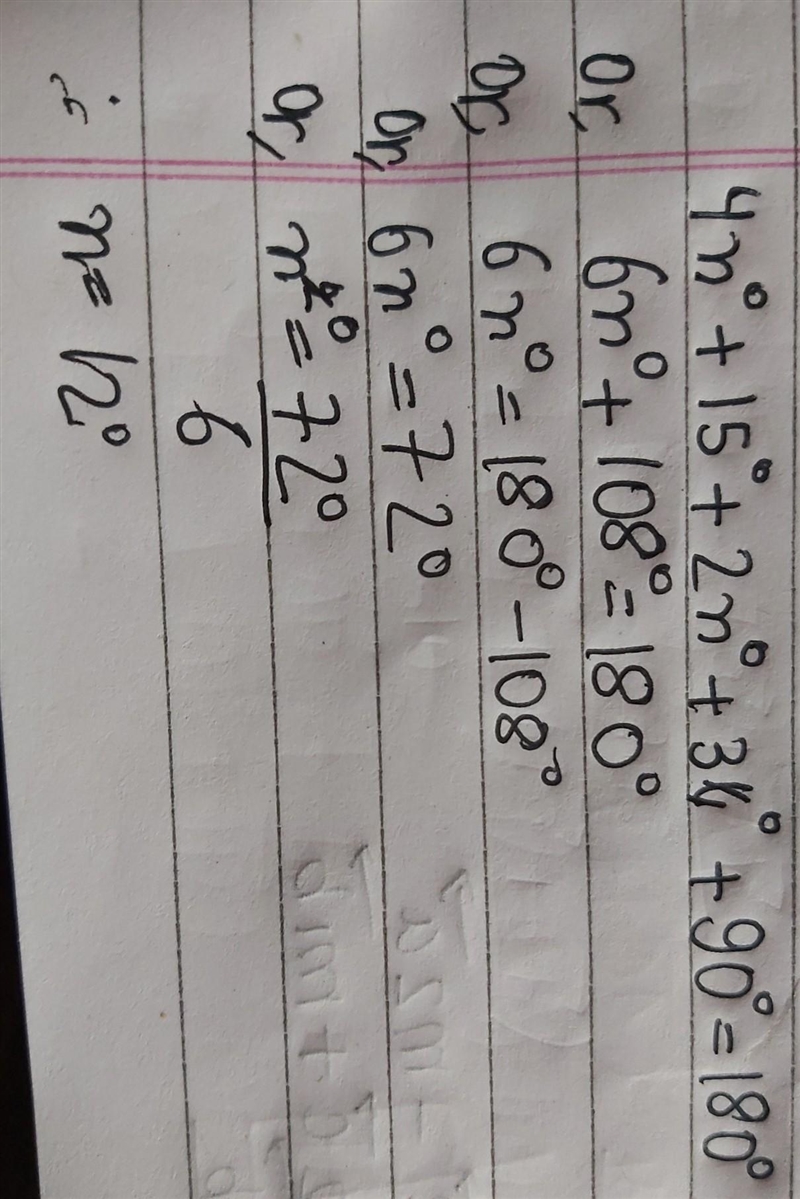 4x° + 15° + 2x° + 3° + 90° = 180°
Or, 6x° + 108° = 180°
Or, 6x° = 180° - 108°
Or, 6x° = 72°
Or, x° = 72°
6
∴ x = 12°